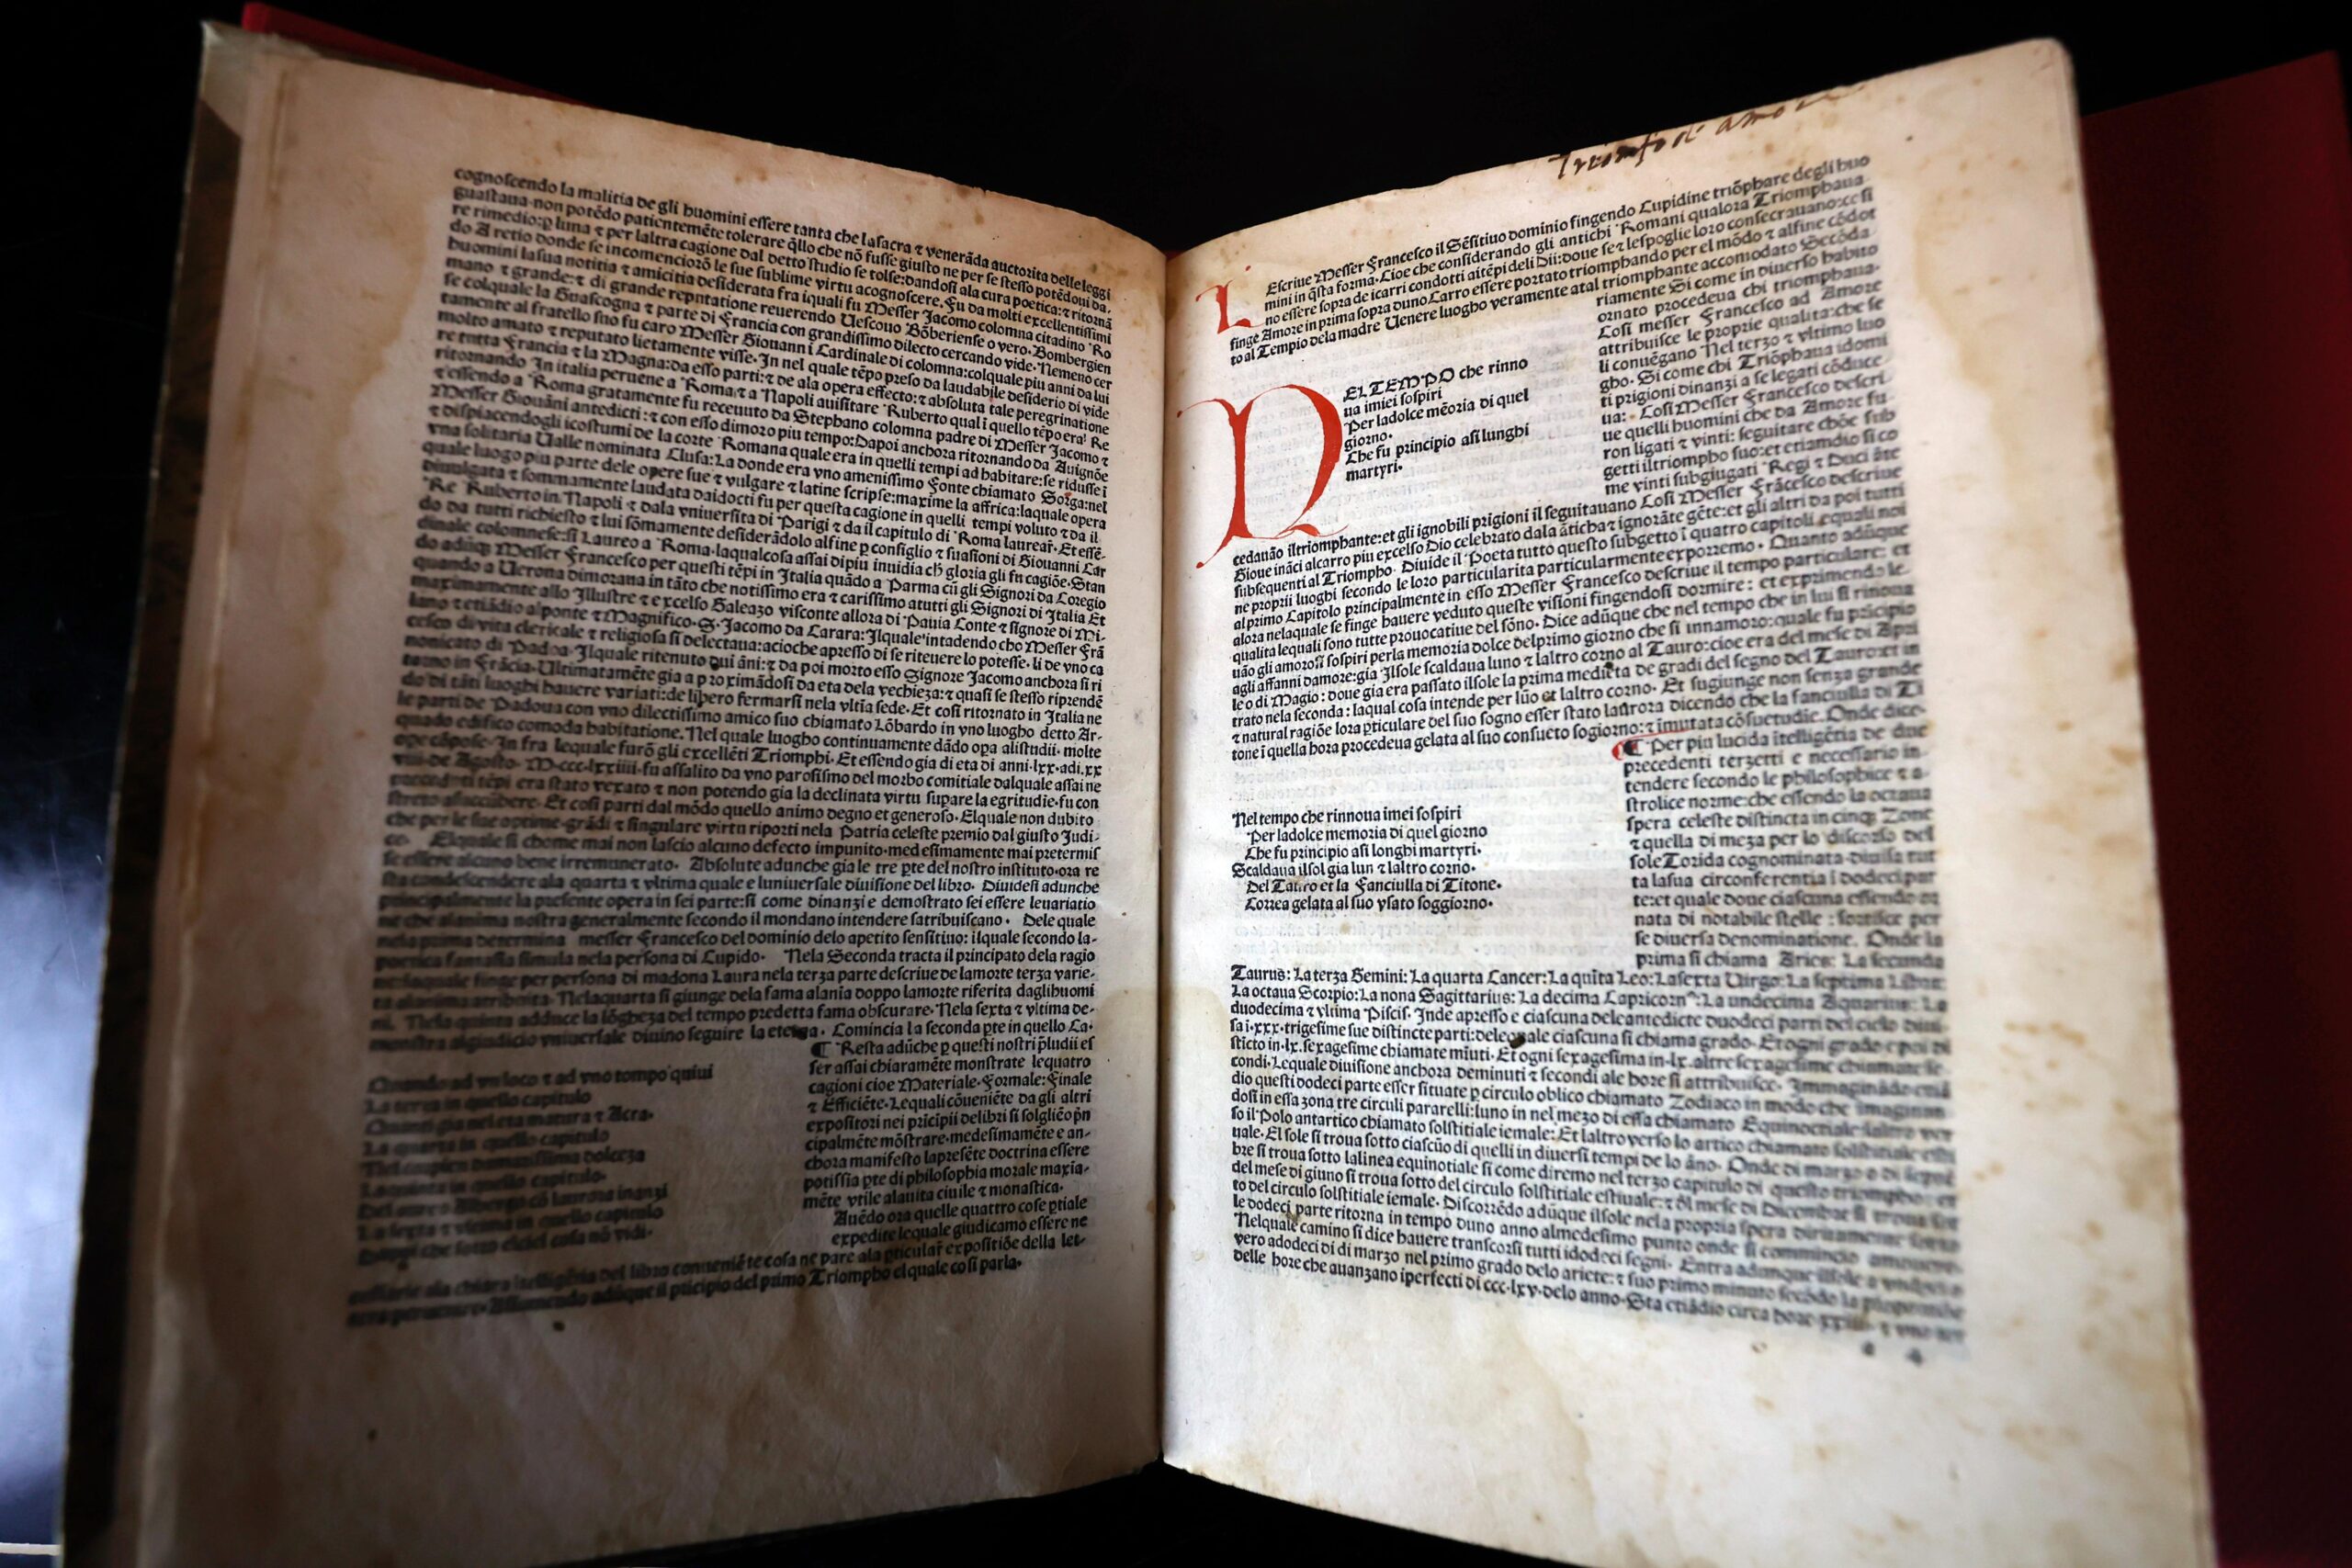 cognoscendo la malitia de gli huomini essere tanta che la sacra ⁊ venerãda auctorita delle leggi
guastaua non potẽdo patientemẽte tolerare q̃llo che nõ fusse giusto ne per se stesso potẽdoui da-
re rimedio: ꝑ luna ⁊ per laltra cagione dal detto studio se tolse: dandosi ala cura poetica: ⁊ ritornã
do A retio donde se incomenciorõ le sue sublime virtu acognoscere. Fu da molti excellentissimi
huomini la sua notitia ⁊ amicitia desiderata fra iquali fu Messer Jacomo colomna citadino Ro
mano ⁊ grande: ⁊ di grande reputatione reuerendo Uescouo Bõberiense o vero. Bombergien
se colquale la Guascogna ⁊ parte di Francia con grandissimo dilecto cercando vide. Nemeno cer
tamente al fratello suo fu caro Messer Giouanni Cardinale di colomna: colquale piu anni da lui
molto amato ⁊ reputato lietamente visse. In nel quale tẽpo preso da laudabile desiderio di vide
re tutta Francia ⁊ la Magna: da esso parti: ⁊ de ala opera effecto: ⁊ absoluta tale peregrinatione
ritornando In italia peruene a Roma ⁊ a Napoli auisitare Ruberto qual ĩ quello tẽpo era Re
⁊ essendo a Roma gratamente fu receuuto da Stephano colomna padre di Messer Jacomo ⁊
Messer Giouãni antedicti: ⁊ con esso dimoro piu tempo: Dapoi anchora ritornando da Auignõe
⁊ dispiacendogli icostumi de la corte Romana quale era in quelli tempi ad habitare: se ridusse ĩ
vna solitaria Ualle nominata Clusa: La donde era vno amenissimo Fonte chiamato Sorga: nel
quale luogo piu parte dele opere sue ⁊ vulgare ⁊ latine scripse: maxime la affrica: laquale opera
diuulgata ⁊ sommamente laudata daidocti fu per questa cagione in quelli tempi voluto ⁊ da il
Re Ruberto in Napoli ⁊ dala vniuersita di Parigi ⁊ da il capitulo di Roma laurear̃. Et essẽ-
do da tutti richiesto ⁊ lui sõmamente desiderãdolo alfine ꝑ consiglio ⁊ suasioni di Giouanni Car
dinale colomnese: si Laureo a Roma. laqualcosa assai dipiu inuidia ch̃ gloria gli fu cagiõe. Stan
do adũq̃ Messer Francesco per questi tẽpi in Italia quãdo a Parma cũ gli Signori da Coregio
quando a Uerona dimoraua in tãto che notissimo era ⁊ carissimo atutti gli Signori di Italia Et
maximamente allo Illustre ⁊ e excelso Galeazo visconte allora di Pauia Conte ⁊ signore di Mi-
lano ⁊ etiãdio alponte ⁊ Magnifico. S. Jacomo da Carara: Ilquale intadendo cho Messer Frã
cesco di vita clericale ⁊ religiosa si delectaua: acioche apresso di se riteuere lo potesse. li de vno ca
nonicato di Padoa. Ilquale ritenuto qui ãni: ⁊ da poi morto esso Signore Jacomo anchora si ri
torno in Frãcia. Ultimatamẽte gia a proximãdosi da eta dela vechieza: ⁊ quasi se stesso riprendẽ
do di tãti luoghi hauere variati: de libero fermarsi nela vltĩa sede. Et cosi ritornato in Italia ne
le parti de Padoua con vno dilectissimo amico suo chiamato Lõbardo in vno luogho detto Ar-
quado edifico comoda habitatione. Nel quale luogho continuamente dãdo oꝑa alistudii. molte
ope cõpose. In fra lequale furõ gli excellẽti Triumphi. Et essendo gia di eta di anni. lxx. adi. xx
viii. de Agosto. M. ccc. lxxiiii. fu assalito da vno parosismo del morbo comitiale dalquale assai ne
precedẽti tẽpi era stato vexato ⁊ non potendo gia la declinata virtu suꝑare la egritudie. fu con
streto asuccũbere. Et cosi parti dal mõdo quello animo degno et generoso. Elquale non dubito
che per le sue optime. grãdi ⁊ singulare virtu riporti nela Patria celeste premio dal giusto Judi-
ce. Elquale si chome mai non lascio alcuno defecto impunito. medesimamente mai pretermis
se essere alcuno bene irremunerato. Absolute adunche gia le tre ꝑte del nostro instituto. ora re
sta condescendere ala quarta ⁊ vltima quale e luniuersale diuisione del libro. Diuidesi adunche
principalmente la presente opera in sei parte: si come dinanzi e demostrato sei essere leuariatio
ne che alanima nostra generalmente secondo il mondano intendere satribuiscano. Dele quale
nela prima determina messer Francesco del dominio delo apetito sensitiuo: ilquale secondo la-
poetica fantasia simula nela persona di Cupido. Nela Seconda tracta il principato dela ragio
ne: laquale finge per persona di madona Laura nela terza parte descriue de lamorte terza varie-
ta alanima atribuita. Nelaquarta si giunge dela fama alanĩa doppo lamorte riferita daglihuomi
ni. Nela quinta adduce la lõgheza del tempo predetta fama obscurare. Nela sexta ⁊ vltima de-
monstra algiudicio vniuersale diuino seguire la eterna. Comincia la seconda ꝑte in quello Ca-
Quando ad vn loco ⁊ ad vno tempo quiui
La terza in quello capitulo
Quanti gia nel eta matura ⁊ Acra.
La quarta in quello capitulo
Nel cupien humanissima dolceza
La quinta in quello capitulo.
Del aureo Albergo cõ laurora inanzi
La sexta ⁊ vltima in quello capitulo
Doppi che sotto elciel cosa nõ vidi.
¶ Resta adũche ꝑ questi nostri ꝓludii es
ser assai chiaramẽte monstrate lequatro
cagioni cioe Materiale. Formale: Finale
⁊ Efficiẽte. Lequali cõueniẽte da gli altri
expositori nei pricipii delibri si solgliẽo pñ
cipalmẽte mõstrare. medesimamẽte e an-
chora manifesto lapresẽte doctrina essere
potissia ꝑte di philosophia morale maxia-
mẽte vtile alauita ciuile ⁊ monastica.
Auẽdo ora quelle quattro cose ꝑtiale
expedite lequale giudicamo essere ne
cessarie ala chiara ĩtelligẽtia del libro conueniẽte cosa ne pare ala ꝑticular̃ expositiõe della let-
tera peruenire. Assumendo adũque il pricipio del primo Triompho elquale cosi parla.
Triompho di amore
LEscriue Messer Francesco il Sẽsitiuo dominio fingendo Cupidine triõphare degli huo
mini in q̃sta forma. Cioe che considerando gli antichi Romani qualora Triomphaua
no essere sopra de icarri condotti aitẽpi deli Dii: doue se ⁊ lespoglie loro consecrauano: co si
finge Amore in prima sopra duno Carro essere portato triomphando per el mõdo ⁊ alfine cõdot
to al Tempio dela madre Uenere luogho veramente atal triomphante accomodato Secõda
riamente Si come in diuerso habito
ornato procedeua chi triomphaua.
Cosi messer Francesco ad Amore
attribuisce le proprie qualita: che se
li conuẽgano Nel terzo ⁊ vltimo luo
gho. Si come chi Triõphaua idomi
ti prigioni dinanzi a se legati cõduce
ua: Cosi Messer Francesco descri
ue quelli huomini che da Amore fu
ron ligati ⁊ vinti: seguitare chõe sub
getti iltriompho suo: et etiamdio si co
me vinti subgiugati Regi ⁊ Duci ãte
NEL TEMPO che rinno
ua imiei sospiri
Per ladolce mẽoria di quel
giorno.
Che fu principio asi lunghi
martyri.
cedauão iltriomphante: et gli ignobili prigioni il seguitauano Cosi Messer Frãcesco descriue
Gioue inãci alcarro piu excelso Dio celebrato dala ãticha ⁊ ignorãte gẽte: et gli altri da poi tutti
subsequenti al Triompho. Diuide il Poeta tutto questo subgetto ĩ quatro capitoli equali noi
ne proprii luoghi secondo le loro particularita particularmente exporremo. Quanto adũque
al primo Capitolo principalmente in esso Messer Francesco descriue il tempo particulare: et
alora nelaquale se finge hauere veduto queste visioni fingendosi dormire: et exprimendo le
qualita lequali sono tutte prouocatiue del sõno. Dice adũque che nel tempo che in lui si rinoua
uão gli amorosi sospiri perla memoria dolce delprimo giorno che si innamoro: quale fu pricipio
agli affanni damore: gia Ilsole scaldaua luno ⁊ laltro corno al Tauro: cioe era del mese di Apri
le o di Magio: doue gia era passato ilsole la prima medieta de gradi del segno del Tauro: et in
trato nela seconda: laqual cosa intende per lũo et laltro corno. Et sugiunge non senza grande
⁊ natural ragiõe lora ꝑticulare del suo sogno esser stato laurora dicendo che la fanciulla di Ti
tone ĩ quella hora procedeua gelata al suo consueto sogiorno: ⁊ ĩmutata cõsuetudie. Onde dice.
Nel tempo che rinnoua imei sospiri
Per ladolce memoria di quel giorno
Che fu principio asi longhi martyri.
Scaldaua ilsol gia lun ⁊ laltro corno.
Del Tauro et la Fanciulla di Titone.
Correa gelata al suo vsato soggiorno.
¶ Per piu lucida ĩtelligẽtia de due
precedenti terzetti e necessario in-
tendere secondo le philosophice ⁊ a-
strolice norme: che essendo la octaua
spera celeste distincta in cinq̃ Zone
⁊ quella di meza per lo discorso del
sole Torida cognominata diuisa tut
ta lasua circonferentia ĩ dodeci par
te: et quale doue ciascuna essendo or
nata di notabile stelle: sortisce per
se diuersa denominatione. Onde la
prima si chiama Aries: La secunda
Taurus: La terza Gemini: La quarta Cancer: La quĩta Leo: Lasexta Uirgo: La septima Libra:
La octaua Scorpio: La nona Sagittarius: La decima Capricornꝰ: La undecima Aquarius: La
duodecima ⁊ vltima Piscis. Inde apresso e ciascuna deleantedicte duodeci parti del cielo diui-
sa i. xxx. trigesime sue distincte parti: delequale ciascuna si chiama grado. Et ogni grado e poi di
sticto in. lx. sexagesime chiamate mĩuti. Et ogni sexagesima in. lx. altre sexagesime chiamate se
condi. Lequale diuisione anchora deminuti ⁊ secondi ale hore si attribuisce. Immaginãdo cniã
dio questi dodeci parte esser situate ꝑ circulo oblico chiamato Zodiaco in modo che imaginan
dosi in essa zona tre circuli pararelli: luno in nel mezo di essa chiamato Equinoctiale: laltro ver
so il Polo antartico chiamato solstitiale iemale: Et laltro verso lo artico chiamato solstitiale esti
uale. El sole si troua sotto ciascũo di quelli in diuersi tempi de lo ãno. Onde di marzo o di septẽ
bre si troua sotto lalinea equinotiale si come diremo nel terzo capitulo di questo triompho: et
del mese di giuno si troua sotto del circulo solstitiale estiuale: ⁊ d̃l mese di Dicembre si troua sot
to del circulo solstitiale iemale. Discorrẽdo adũque ilsole nela propria spera diritamente sotto
le dodeci parte ritorna in tempo duno anno almedesimo punto onde si commincio amouere.
Nelquale camino si dice hauere transcorsi tutti idodeci segni. Entra adunque ilsole a vndeci o
vero adodeci di di marzo nel primo grado delo ariete: ⁊ suo primo minuto secõdo la
delle hore che auanzano iperfecti di ccc. lxv. delo anno. Sta etiãdio circa hore xxiiii. ⁊ vno
a 4